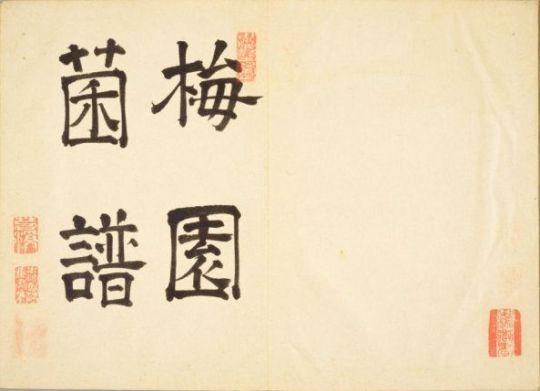 梅園
菌譜